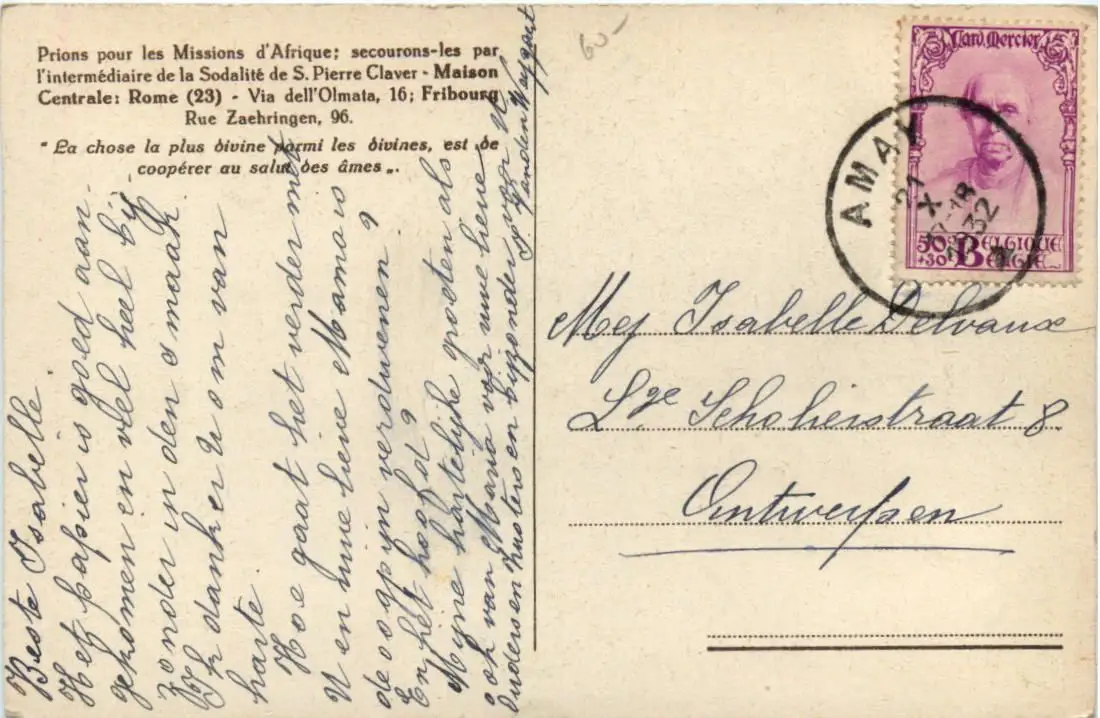 Prions pour les Missions d'Afrique; secourons-les par
l'intermédiaire de la Sodalité de S. Pierre Claver - Maison
Centrale: Rome (23) - Via dell'Olmata, 16; Fribourg
Rue Zaehringen, 96.
"La chose la plus divine parmi les divines, est de
coopérer au salut des âmes„.
60-
Card. Mercier
50c BELGIQUE
+30 BELGIË
AMAY
21
X
18
1932
Mej Isabelle Delvaux
Lge Scholierstraat 8
Antwerpen
Beste Isabelle
Het papier is goed aan-
gekomen en viel heel bij-
zonder in den smaak
Ik danker U om van
harte
Hoe gaat het verder met
U en uwe lieve Mama is
de oogpijn verdwenen?
En het hoofd?
Mijne hartelijke groeten als
ook van Maria voor uwe lieve
Ouders en Zusters en bijzonder voor U